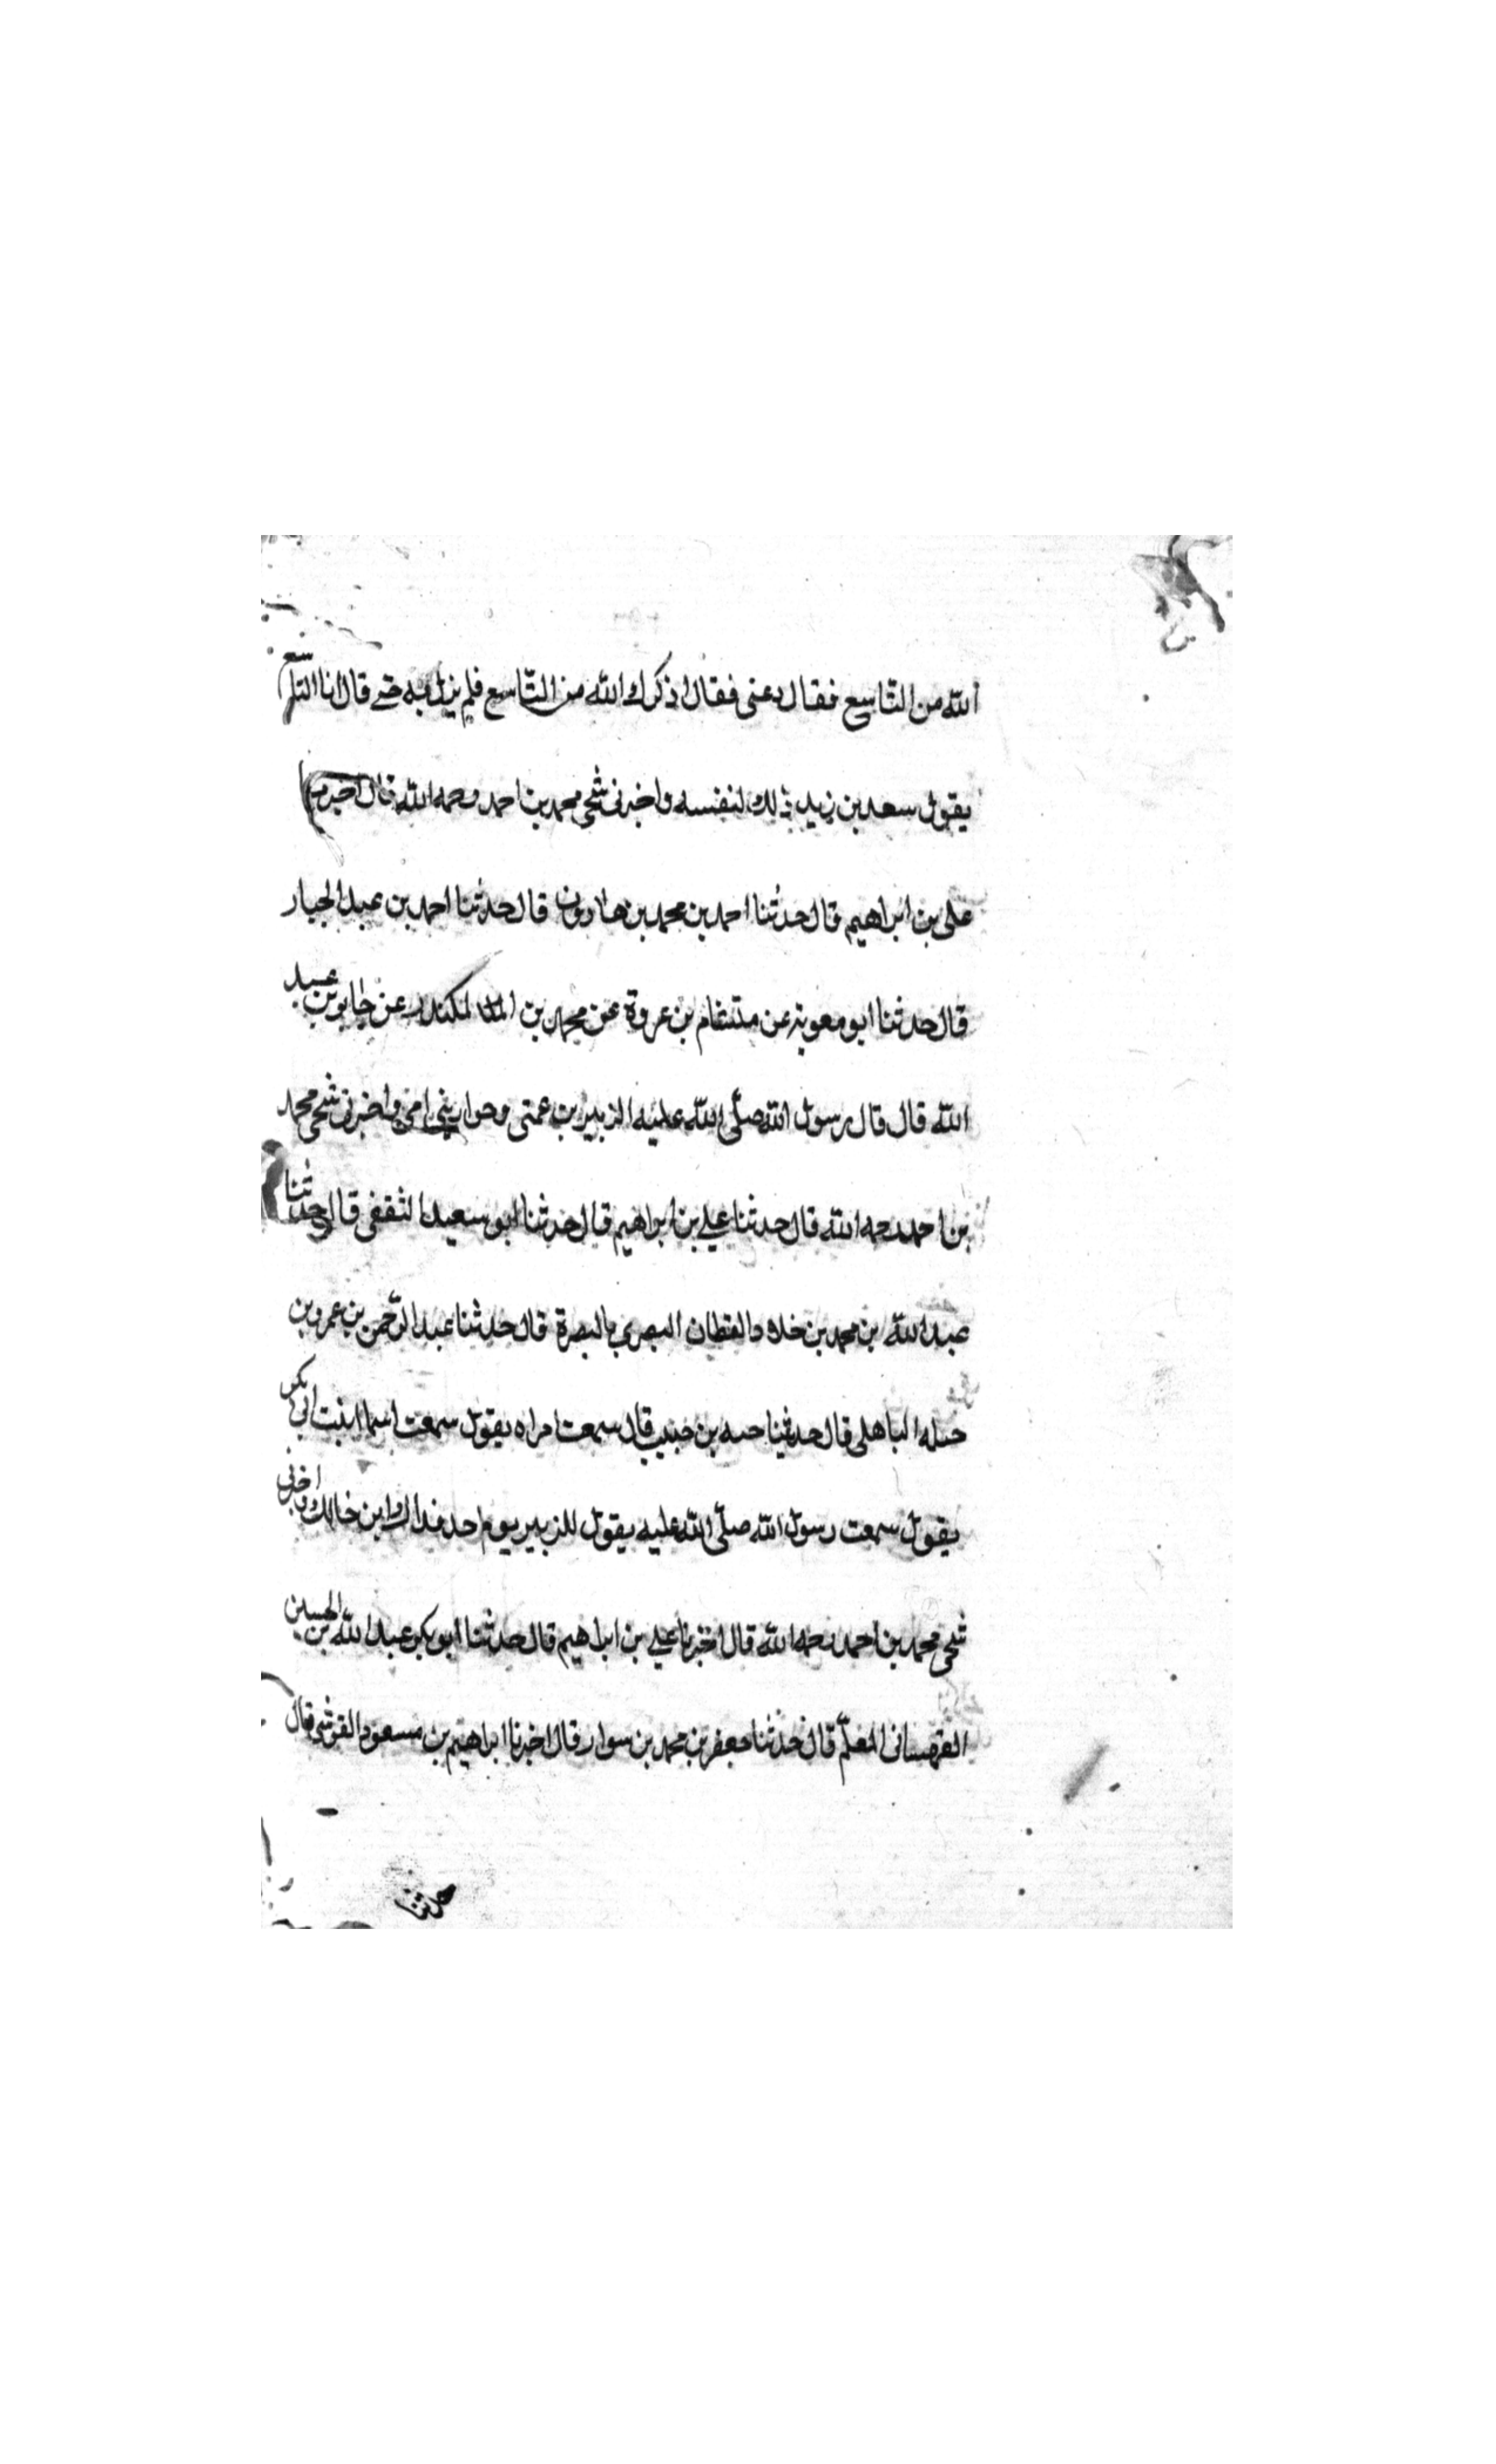 الله من التاسع فقال دعنى فقال اذكرك الله من التاسع فلم يزل به حتى قال انا التاسع
يقول سعد بن زيد ذلك لنفسه واخبرنى شيخى محمد بن احمد رحمه الله قال اخبرنا
على بن ابراهيم قال حدثنا احمد بن محمد بن هارون قال حدثنا احمد بن عبد الجبار
قال حدثنا ابو معوية عن هشام بن عروة عن محمد بن المنكدر عن جابر بن عبد
الله قال قال رسول الله صلّى الله عليه الزبير بن عمتى وحواريى امتى واخبرنى شيخى محمد
بن احمد رحمه الله قال حدثنا على بن ابراهيم قال حدثنا ابو سعيد الثقفى قال حدثنا
عبد الله بن محمد بن خلاد القطان البصرى بالبصرة قال حدثنا عبد الرّحمن بن عمرو بن
جبله الباهلى قال حدثتنا بن حبيب قال سمعت امراه يقول سمعت اسما ابنت ابى بكر
يقول سمعت رسول الله صلّى الله عليه يقول للزبير يوم احد فداك وابن خالك واخبرنى
شيخى محمد بن احمد رحمه الله قال اخبرنا على بن ابراهيم قال حدثنا ابو بكر عبد الله بن الحسين
القهستانى المعلّم قال حدثنا جعفر بن محمد بن سوار قال اخبرنا ابراهيم بن مسعود القرشى قال
حدثنا